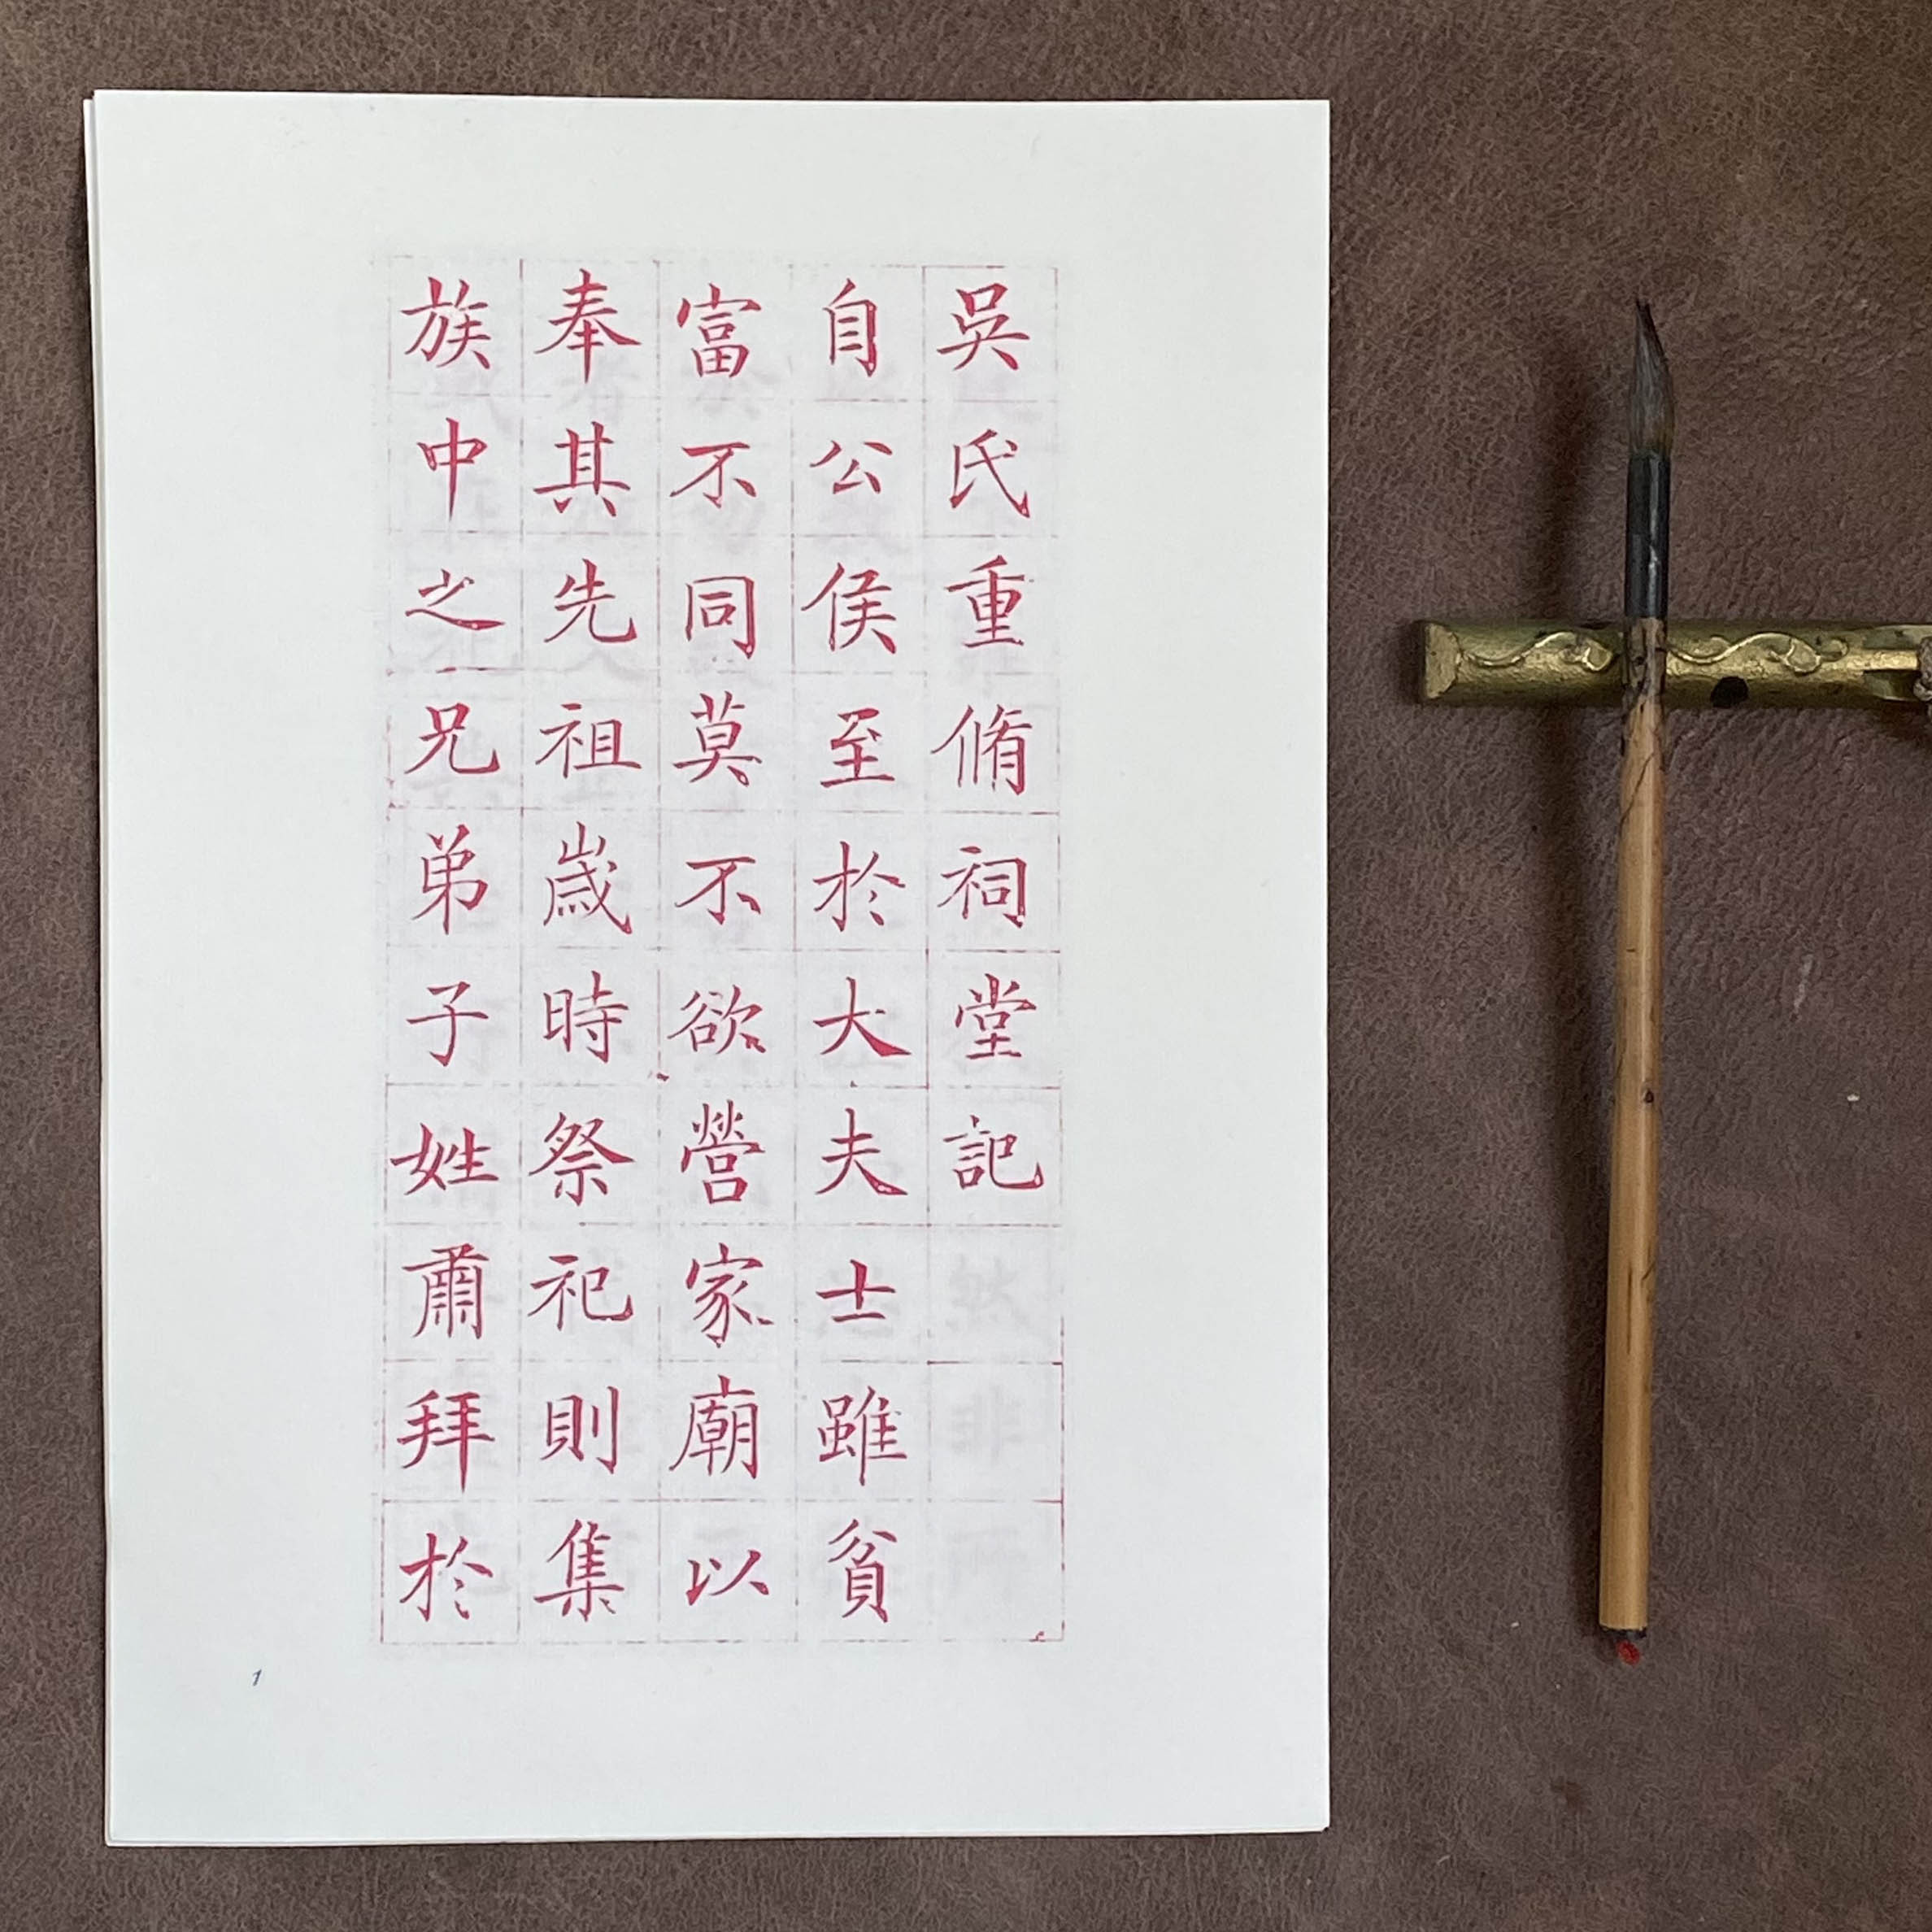 吳氏重脩祠堂記
自公侯至於大夫士雖貧
富不同莫不欲營家廟以
奉其先祖歲時祭祀則集
族中之兄弟子姓肅拜於
1